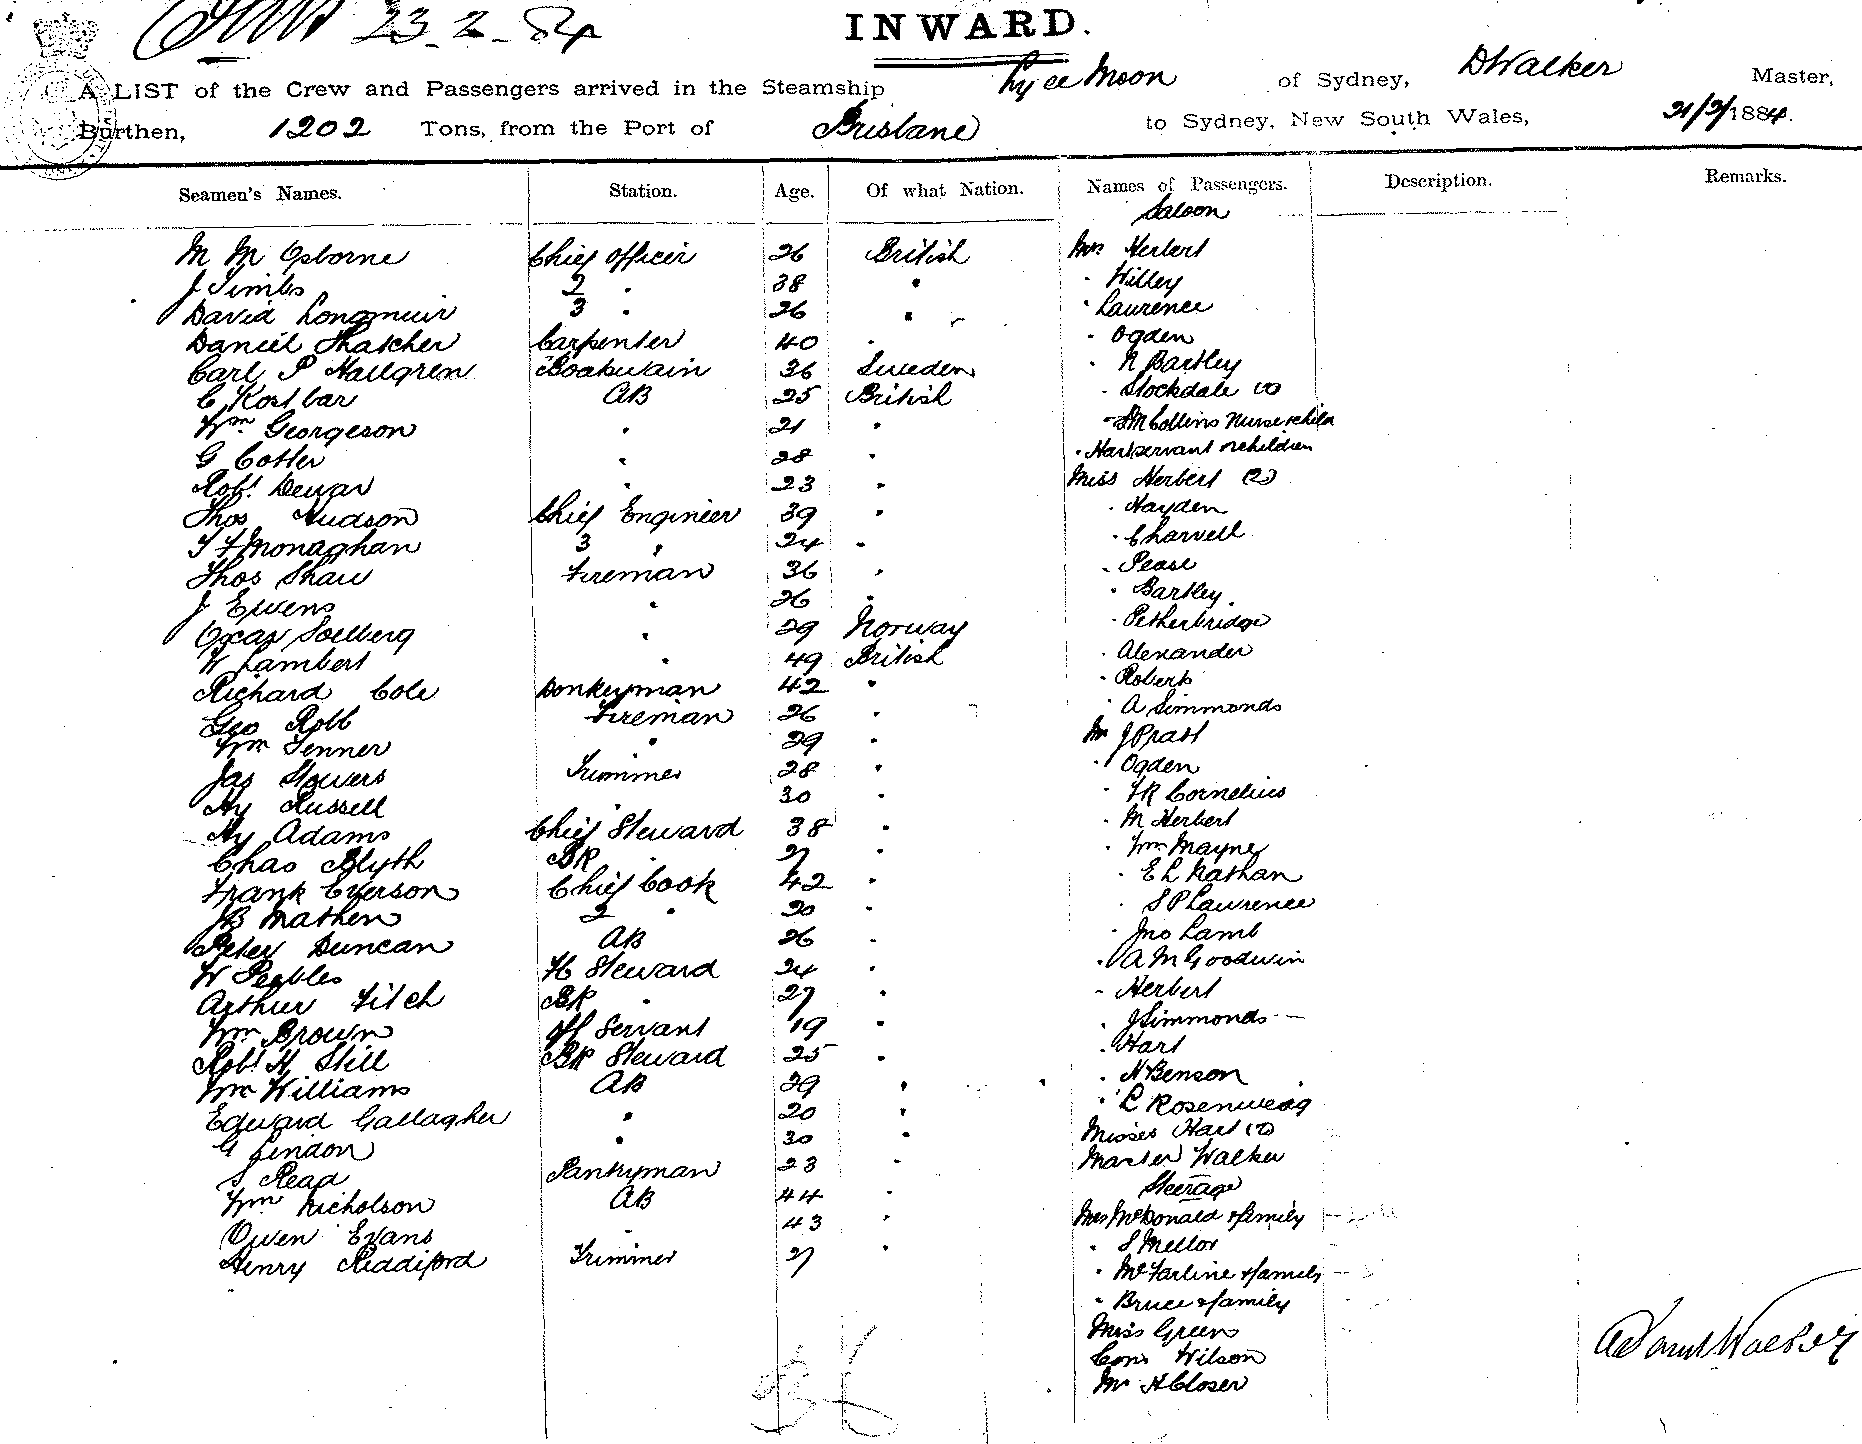 23-2-84
INWARD.
A LIST of the Crew and Passengers arrived in the Steamship Ly ee Moon of Sydney, D Walker Master,
Burthen, 1202 Tons, from the Port of Brisbane to Sydney, New South Wales, 21/2/1884.
Seamen's Names. Station. Age. Of what Nation. Names of Passengers. Description. Remarks.
Saloon
M M Osborne Chief Officer 26 British Mrs Herbert
J Timbs 2 " 38 " " Willey
David Longmuir 3 " 26 " " Laurence
Daniel Thatcher Carpenter 40 " " Ogden
Carl P Hallgren Boatswain 36 Sweden " N Bartley
C Kostbar AB 25 British " Stockdale (2)
Wm Georgeson " 21 " " Collins Nurse & child
G Cotter " 28 " " Hart servant & children
Robt Dewar " 23 " Miss Herbert (2)
Thos Hudson Chief Engineer 39 " " Hayden
T F Monaghan 3 " 24 " " Charvell
Thos Shaw Fireman 36 " " Pease
J Ewens " 26 " " Bartley
Oscar Soelberg " 29 Norway " Petherbridge
W Lambert " 49 British " Alexander
Richard Cole Donkeyman 42 " " Roberts
Geo Robb Fireman 26 " " A Simmonds
Wm Fenner " 29 " Mr J Pratt
Jas Stowers Trimmer 28 " " Ogden
Hy Russell 30 " " F R Cornelius
Hy Adams Chief Steward 38 " " M Herbert
Chas Blyth BR " 27 " " Wm Mayne
Frank Everson Chief Cook 42 " " E L Nathan
J B Mathen 2 " 20 " " S P Lawrence
Peter Duncan AB 26 " " Jno Lamb
W Peebles Steward 24 " " A M Goodwin
Arthur Fitch BR " 27 " " Herbert
Wm Brown Off Servant 19 " " J Simmonds
Robt H Still BR Steward 25 " " Hart
Wm Williams AB 29 " " N Benson
Edward Gallagher " 20 " " L Rosenweag
G Lindon " 30 " Misses Hart (2)
S Read Pantryman 23 " Master Walker
Steerage
Wm Nicholson AB 44 " Mrs McDonald & family
Owen Evans " 43 " " S Mellor
Henry Reddiford Trimmer 27 " " McFarline & family
" Bruce & family
Miss Green
Cons Wilson
Mr H Closer
36